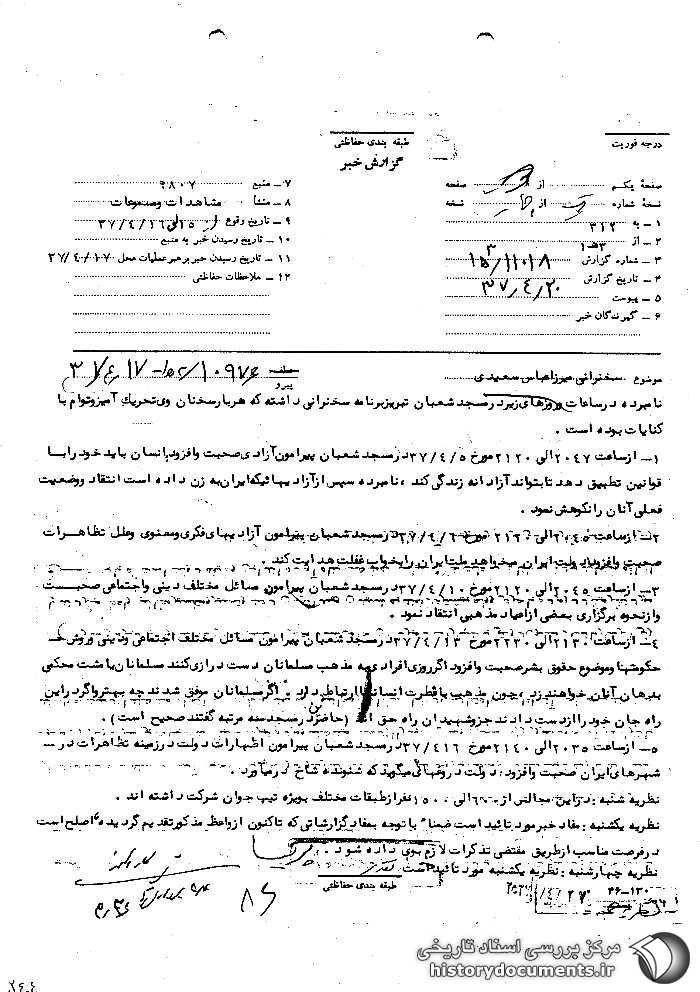 درجه فوریت
طبقه بندی حفاظتی
گزارش خبر
صفحهٔ یکم از صفحه
نسخهٔ شماره از نسخه
۱ـ به ۳۱۲
۲ـ از ۳ هـ ۱
۳ـ شماره گزارش ۱۵/۱۱۰۱۸
۴ـ تاریخ گزارش ۳۷/۴/۲۰
۵ـ پیوست
۶ـ گیرندگان خبر
۷ـ منبع ۹۸۰۷
۸ـ منشأ مشاهدات ومسموعات
۹ـ تاریخ وقوع از ۵ الی ۳۷/۴/۱۶
۱۰ـ تاریخ رسیدن خبر به منبع
۱۱ـ تاریخ رسیدن خبر برهبر عملیات محل ۳۷/۴/۱۷
۱۲ـ ملاحظات حفاظتی
موضوع سخنرانی میرزاعباس سعیدی
پیرو
نامبرده درساعات وروزهای زیردرمسجدشعبان تبریزبرنامه سخنرانی داشته که هربارسخنان وی تحریک آمیزوتوام با
کنایات بوده است .
۱ـ ازساعت ۲۰۴۷ الی ۲۱۲۰ مورخ ۳۷/۴/۵ درمسجدشعبان پیرامون آزادی صحبت وافزودانسان بایدخودرابا
قوانین تطبیق دهدتابتواندآزادانه زندگی کند ، نامبرده سپس ازآزادیهائیکه ایران به زن داده است انتقاد ووضعیت
فعلی آنان رانکوهش نمود .
۲ـ ازساعت ۲۰۴۵ الی مورخ ۳۷/۴/۶ درمسجدشعبان پیرامون آزادیهای فکری ومعنوی وعلل تظاهرات
صحبت وافزوددولت ایران میخواهدملت ایران رابخواب غفلت هدایت کند .
۳ـ ازساعت ۲۰۴۵ الی ۲۱۲۰ مورخ ۳۷/۴/۱۰ درمسجدشعبان پیرامون مسائل مختلف دینی واجتماعی صحبت
وازنحوه برگزاری بعضی ازاعیاد مذهبی انتقاد نمود .
۴ـ ازساعت ۲۱۳۰ الی ۲۲۳۰ مورخ ۳۷/۴/۱۳ درمسجدشعبان پیرامون مسائل مختلف اجتماعی ودینی وروش
حکومتها وموضوع حقوق بشرصحبت وافزوداگرروزی افرادی به مذهب مسلمانان دست درازی کنند مسلمانان بامشت محکمی
بدهان آنان خواهندزد ، چون مذهب بافطرت انسانها ارتباط دارد . اگرمسلمانان موفق شدند چه بهتروگردراین
راه جان خودراازدست دادند جزوشهیدان راه حق اند (حاضرین درمسجدسه مرتبه گفتندصحیح است) .
۵ـ ازساعت ۲۰۳۵ الی ۲۱۴۰ مورخ ۳۷/۴/۱۶ درمسجدشعبان پیرامون اظهارات دولت درزمینه تظاهرات در
شهرهای ایران صحبت وافزود : دولت دروغهائی میگویدکه شنونده شاخ درمیآورد .
نظریه شنبه : دراین مجالس از الی ۱۵۰۰ نفرازطبقات مختلف بویژه تیپ جوان شرکت داشته اند .
نظریه یکشنبه : مفاد خبرمورد تائید است ضمنا" با توجه بمفادگزارشاتی که تاکنون ازواعظ مذکورتقدیم گردیده "اصلح است
درفرصت مناسب ازطریق مقتضی تذکرات لازم بوی داده شود .
نظریه چهارشنبه : نظریه یکشنبه مورد تائیداست .
طبقه بندی حفاظتی
مرکز بررسی اسناد تاریخی
historydocuments.ir